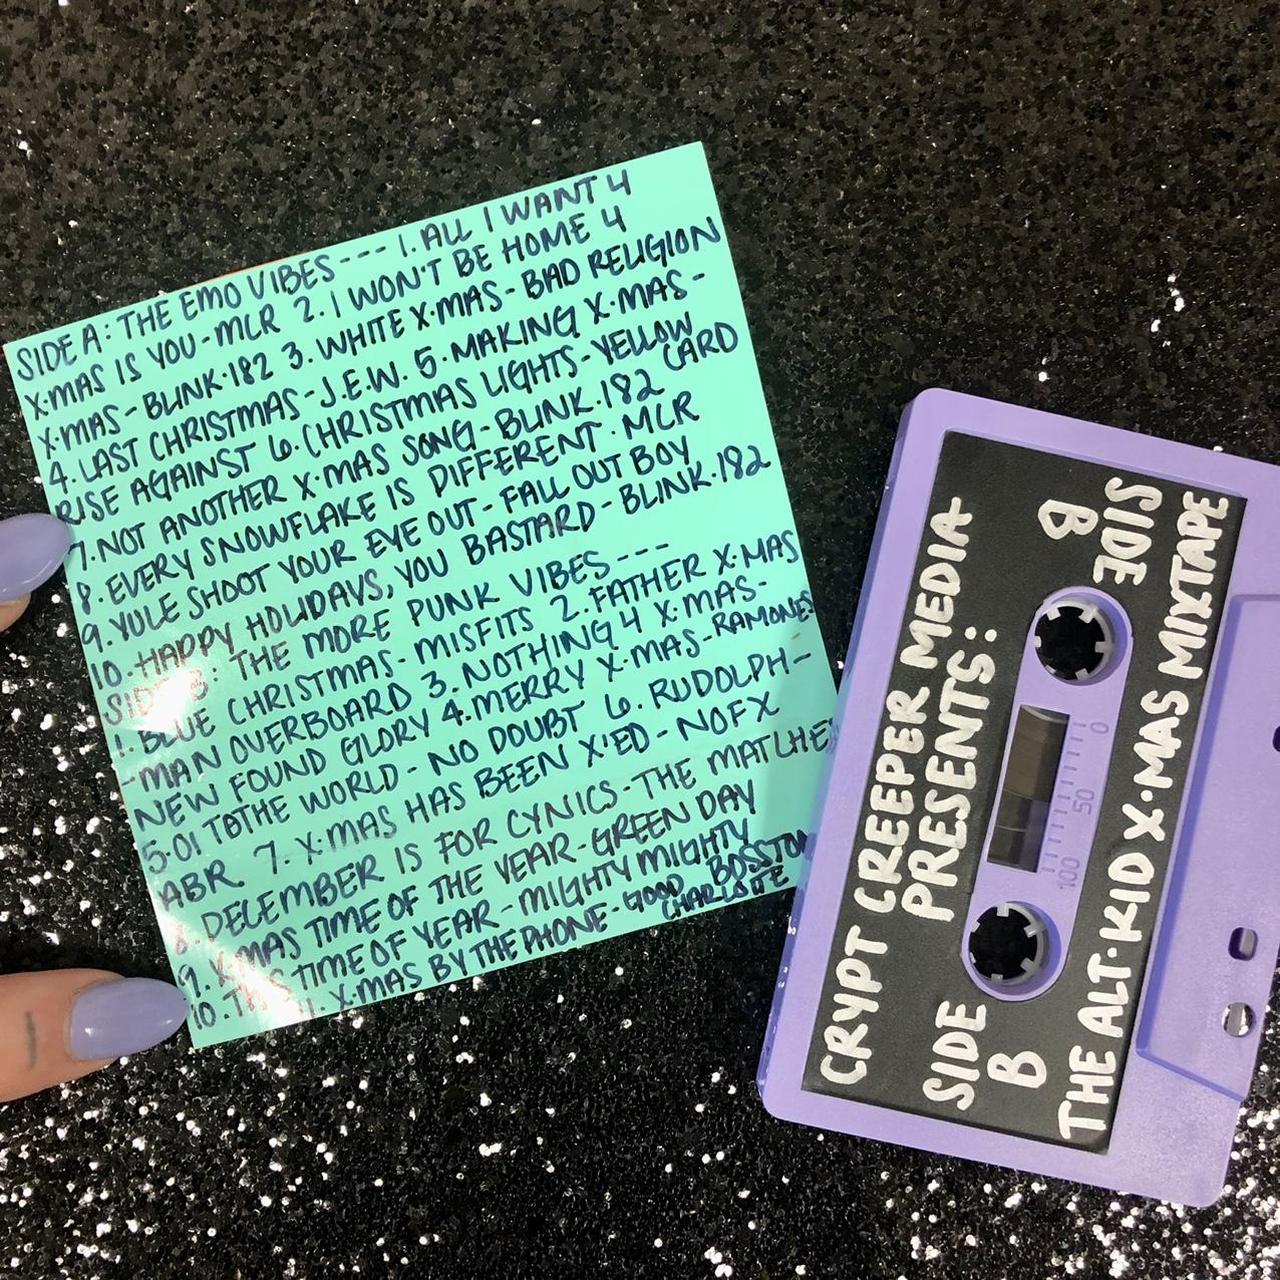 SIDE A: THE EMO VIBES --- 1. ALL I WANT 4
X·MAS IS YOU - MCR 2. I WON'T BE HOME 4
X·MAS - BLINK·182 3. WHITE X·MAS - BAD RELIGION
4. LAST CHRISTMAS - J.E.W. 5. MAKING X·MAS -
RISE AGAINST 6. CHRISTMAS LIGHTS - YELLOW
CARD
7. NOT ANOTHER X·MAS SONG - BLINK·182
8. EVERY SNOWFLAKE IS DIFFERENT · MCR
9. YULE SHOOT YOUR EYE OUT - FALL OUT BOY
10. HAPPY HOLIDAYS, YOU BASTARD - BLINK·182
SIDE B: THE MORE PUNK VIBES ---
1. BLUE CHRISTMAS - MISFITS 2. FATHER X·MAS
- MAN OVERBOARD 3. NOTHING 4 X·MAS -
NEW FOUND GLORY 4. MERRY X·MAS - RAMONES
5. OI TO THE WORLD - NO DOUBT 6. RUDOLPH -
ABR 7. X·MAS HAS BEEN X'ED - NOFX
8. DECEMBER IS FOR CYNICS - THE MATCHES
9. X·MAS TIME OF THE YEAR - GREEN DAY
10. THIS TIME OF YEAR - MIGHTY MIGHTY
BOSSTON
11. X·MAS BY THE PHONE - GOOD
CHARLOTTE
CRYPT CREEPER MEDIA
PRESENTS:
SIDE
B
SIDE
B
THE ALT·KID X·MAS MIXTAPE
0
50
100